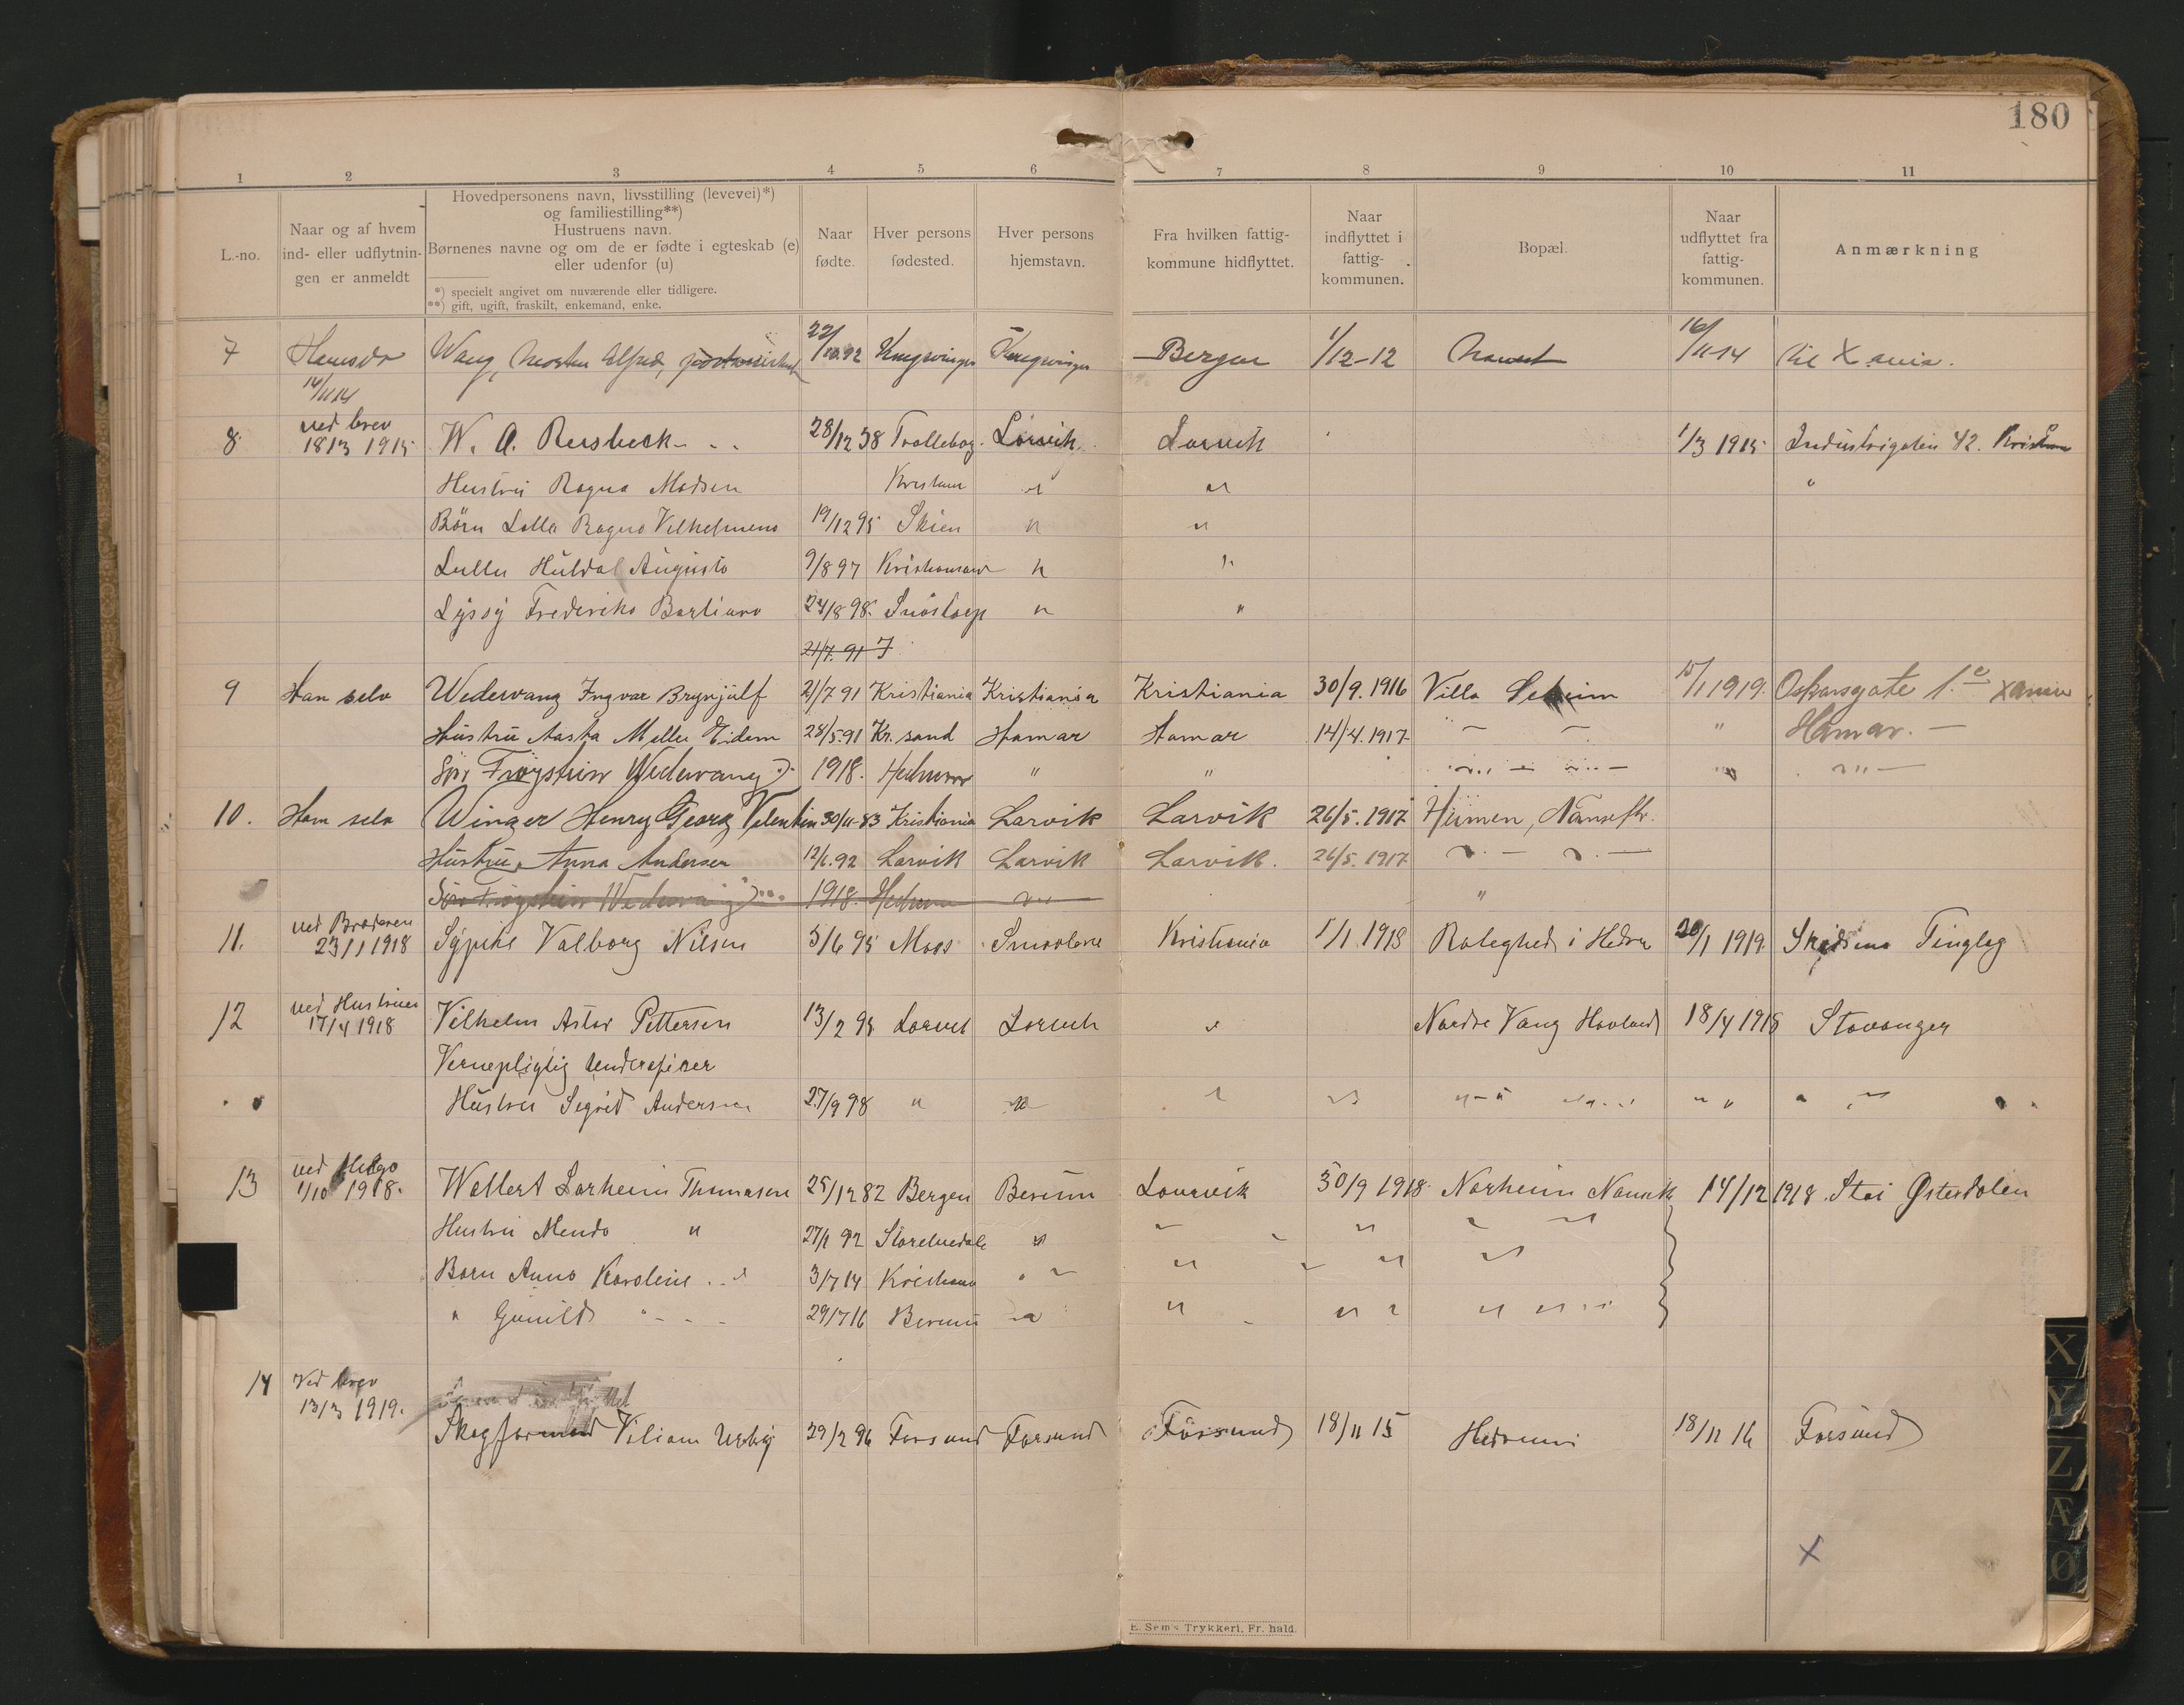 180
1 2 3 4 5 6 7 8 9 10 11
L.-no.
Naar og af hvem
ind- eller udflytnin-
gen er anmeldt
Hovedpersonens navn, livsstilling (levevei)*)
og familiestilling**)
Hustruens navn.
Børnenes navne og om de er fødte i egteskab (e)
eller udenfor (u)
*) specielt angivet om nuværende eller tidligere.
**) gift, ugift, fraskilt, enkemand, enke.
Naar
fødte.
Hver persons
fødested.
Hver persons
hjemstavn.
Fra hvilken fattig-
kommune hidflyttet.
Naar
indflyttet i
fattig-
kommunen.
Bopæl.
Naar
udflyttet fra
fattig-
kommunen.
Anmærkning
7 Wang, Morten Alfred, 22/10.92 Kongsvinger Kongsvinger Bergen 1/12-12 16/11-14 til Xania.
16/11 14
ved brev
8. 18/3 1915 W. A. Reisbeck 28/12 58 Trolleborg. Larvik Larvik 1/3 1915 Industrigaten 42.
Hustru Ragna Madsen " " "
Børn Lalla Ragna Vilhelmene 19/12 95 Skien " "
Lulla Huldal Augusta 9/8 97 " "
Lyssy Frederike Bartiana 24/8 98. Snöstorp " "
21/7. 91
9 Han selv Wedervang Ingvar Brynjulf 21/7 91 Kristiania Kristiania Kristiania 30/9. 1916 Villa 15/1 1919. Oskarsgate 1. Xania
Hustru Aasta Møller Eidem 28/5.91 Kr. sand Hamar Hamar 14/4. 1917 " Hamar. —
Søn Frøystein Wedervang 1918. Hedrum " "
10. Han selv Winger Henry Georg Valentin 30/11-83 Kristiania Larvik Larvik 26/5. 1917
Hustru Anna Andersen 12/6.92 Larvik Larvik Larvik. 26/5. 1917
Søn Frøystein Wedervang 1918. Hedrum "
ved Broderen
11. 23/1 1918 Sypike Valborg Nilsen 5/6 95 Moss Kristiania 1/1 1918 Roleghed i Hedrum 20/1 1919 Skedsmo Tinglag
ved Hustruen
12 17/4 1918 Vilhelm Astor Pettersen 13/2 95 Larvik Larvik " Nordre Vang Hovland 18/4 1918 Stavanger
Vernepligtig Underofiser
Hustru Sigrid Andersen 27/9 98 " "
ved Helge
13 1/10 1918. Wallert Lorheim Thomasen 25/12 82 Bergen Berum Laurvik 30/9 1918 Norheim 14/12 1918. Stai Østerdalen
Hustru " 27/1 92 Storelvedalen "
Barn Anna Karoline 3/7 14 Kristiania
" Gunild 29/7 16 Berum
Ved brev
14 13/3 1919.
Viliam 29/2 96 Farsund Farsund Farsund 18/11 15 Hedrum 18/11 16 Farsund
X
E. Sem's Trykkeri, Fr. hald.
X
Y
Z
Æ
Ø